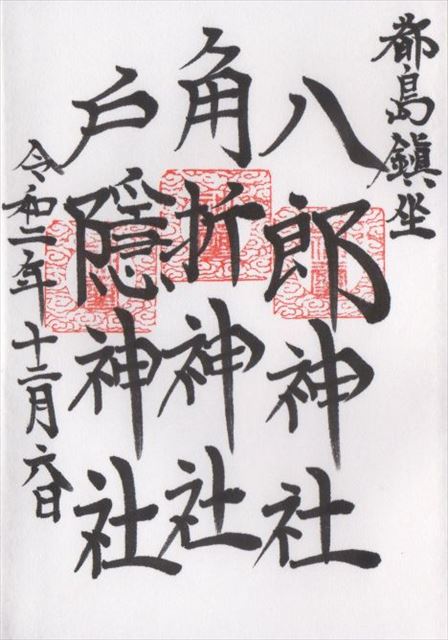 都島鎮坐
八郎神社
角折神社
戸隠神社
令和二年 十二月六日